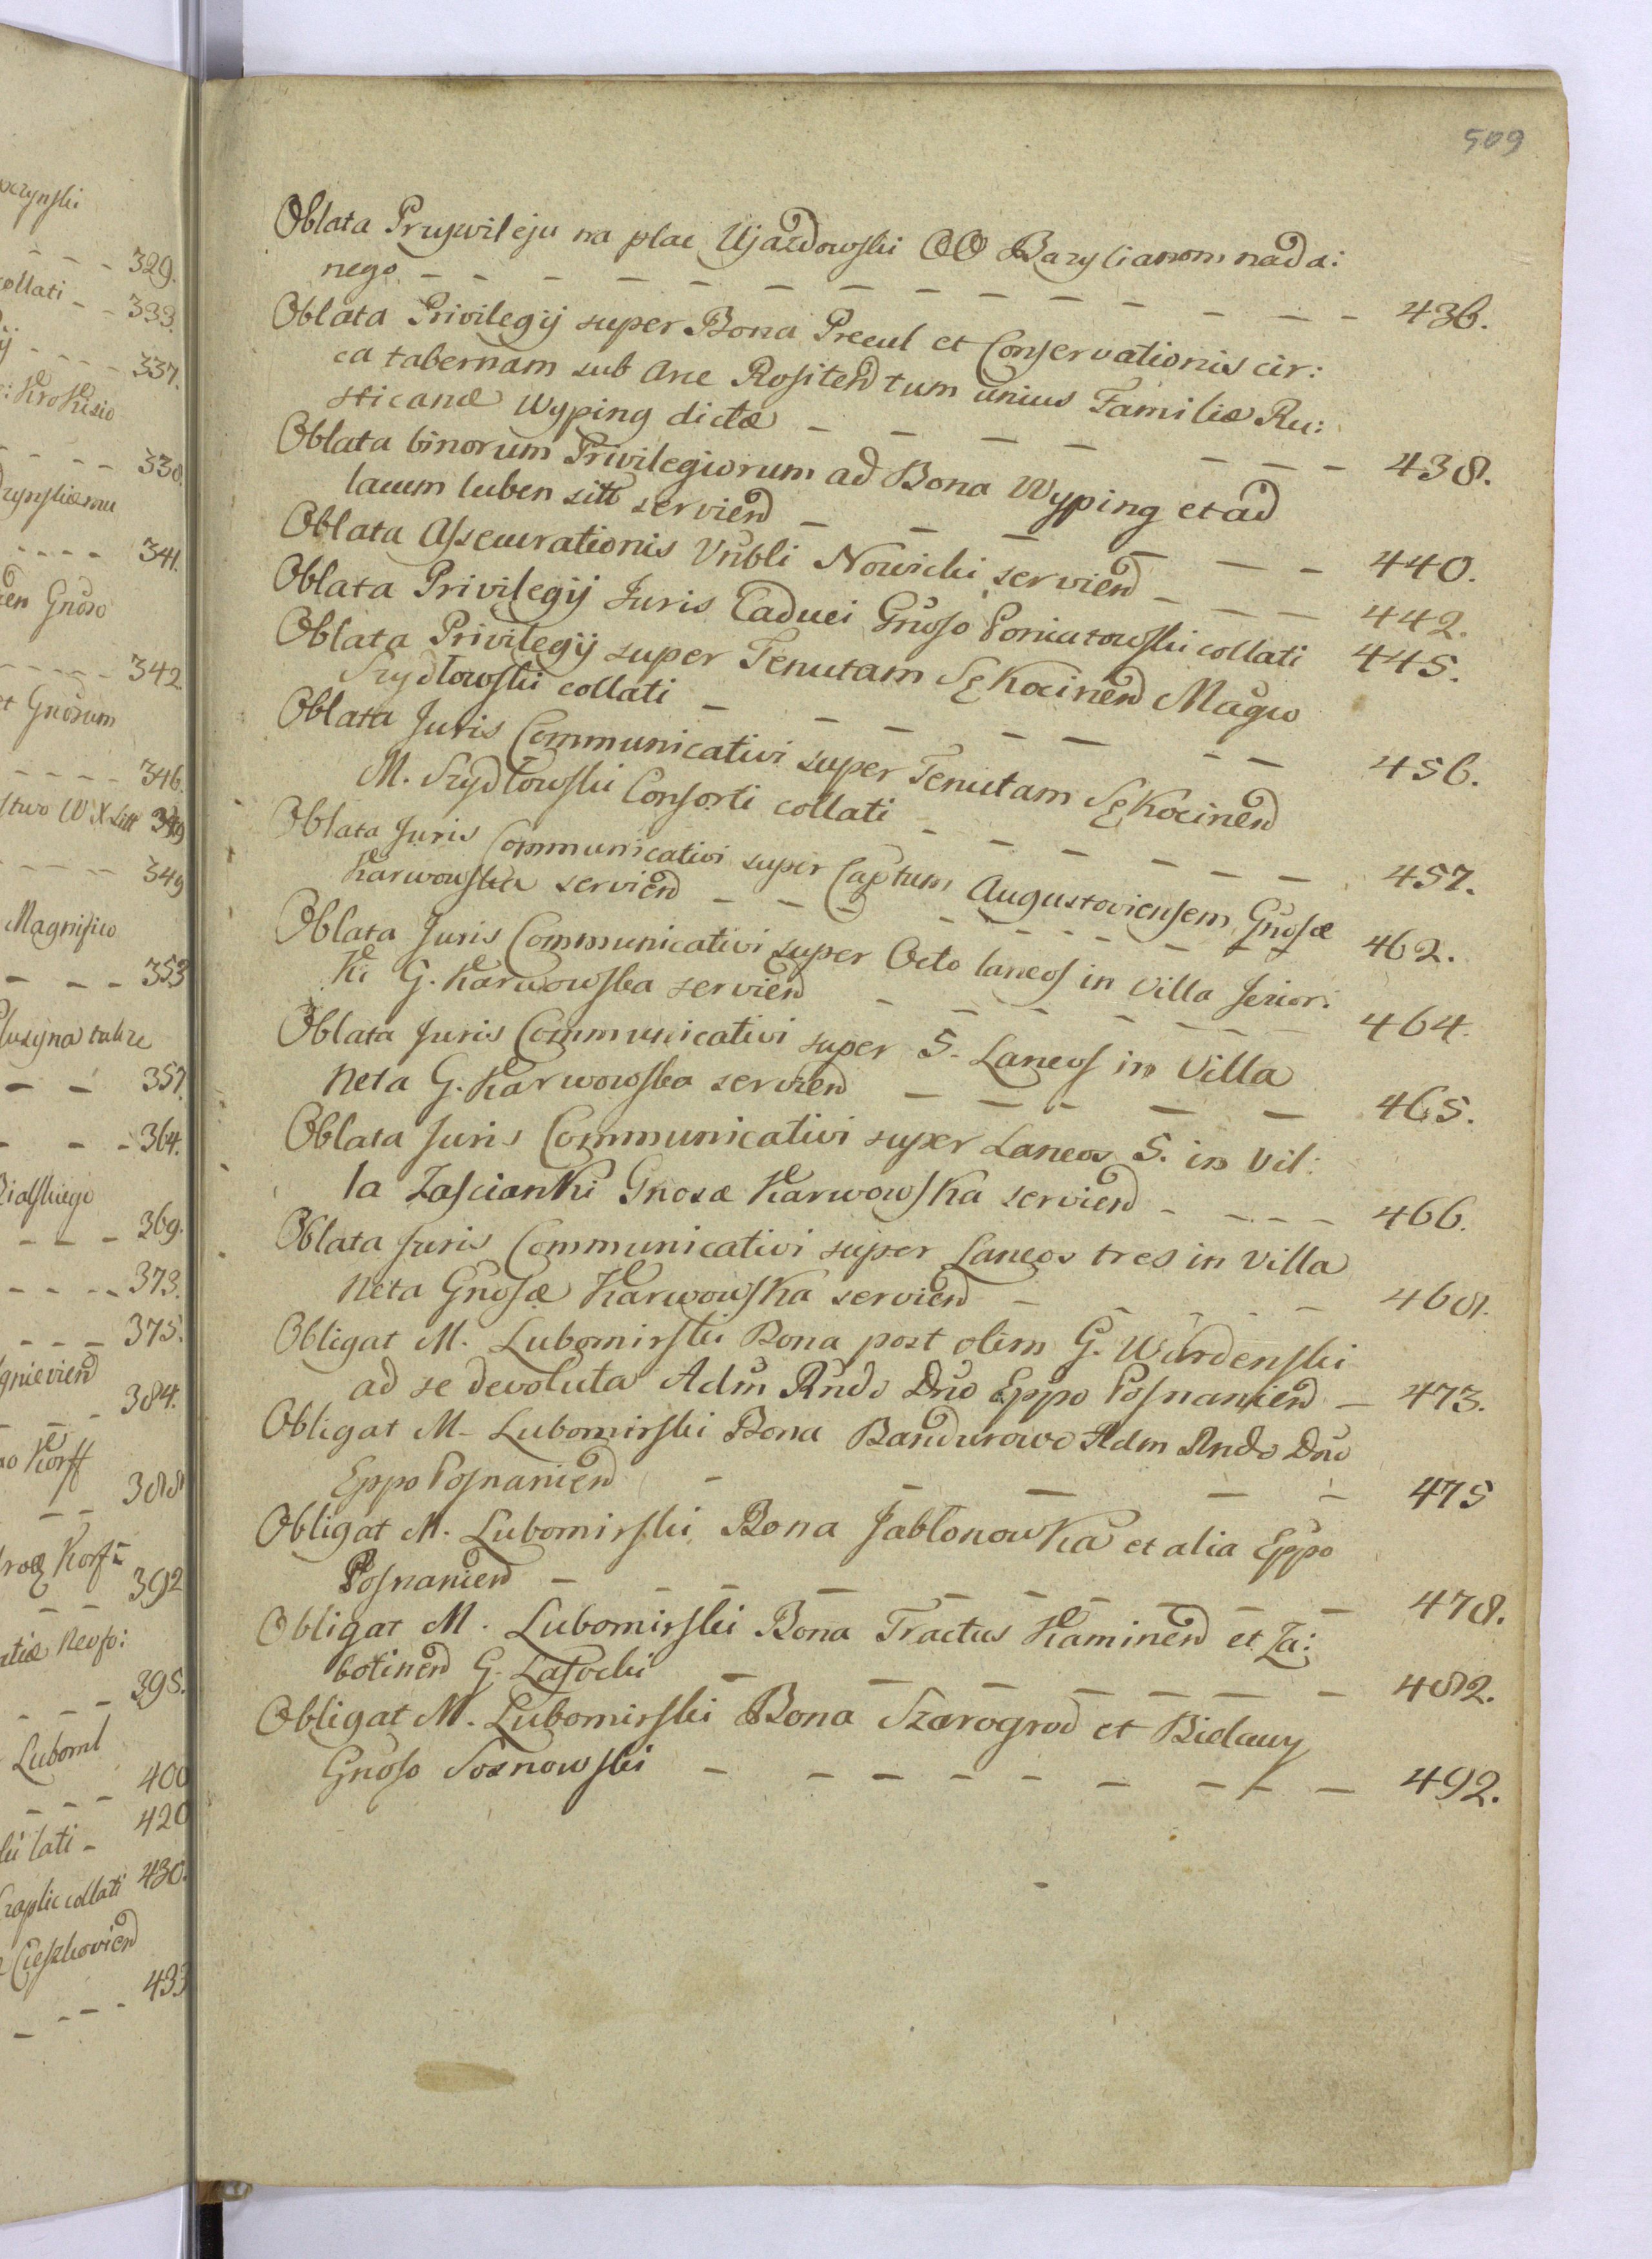 509
Oblata Przywileju na plac Ujazdowski OO Bazylianom nada:
nego - - - - - - - - - - - - - - - 436.
Oblata Privilegij super Bona Precul et Conservationis cir:
ca tabernam sub Arce Rositen tum unius Familiæ Ru:
sticanæ Wyping dictæ - - - - - - - - 438.
Oblata binorum Privilegiorum ad Bona Wyping et ad
lacum luben sitt servien - - - - - - 440.
Oblata Assecurationis Vrbli Nowicki servien - - - - 442.
Oblata Privilegij Juris Caduci Gnoso Poniatowski collati 445.
Oblata Privilegij super Tenutam Sękocinen Magco
Szydłowski collati - - - - - - - - 456.
Oblata Juris Communicativi super Tenutam Sękocinen
M. Szydłowski Consorti collati - - - - - - - 457.
Oblata Juris Communicativi super Captum Augustoviensem Gnosæ
Karwowska servien - - - - - - - - - - 462.
Oblata Juris Communicativi super Octo laneos in Villa Jezior:
ki G. Karwowska servien - - - - - - - 464.
Oblata Juris Communicativi super 5. Laneos in Villa
Neta G. Karwowska servien - - - - - 465.
Oblata Juris Communicativi super Laneos 5. in Vil:
la Zascianki Gnosæ Karwowska servien - - - - - 466.
Oblata Juris Communicativi super Laneos tres in Villa
Neta Gnosæ Karwowska servien - - - - - 468.
Obligat M. Lubomirski Bona post olim G. Wardenski
ad se devoluta Adm Rndo Dno Eppo Posnanien - 473.
Obligat M. Lubomirski Bona Bandurowo Adm Rndo Dno
Eppo Posnanien - - - - - 475
Obligat M. Lubomirski Bona Jabłonowka et alia Eppo
Posnanien - - - - - - - - - 478.
Obligat M. Lubomirski Bona Tractus Kaminen et Za:
botinen G. Lasocki - - - - - - - 482.
Obligat M. Lubomirski Bona Szarogrod et Bielawy
Gnoso Sosnowski - - - - - - - - - - 492.
329.
collati - - 333.
337.
338.
341.
Gnoso
342.
et Gnosum
346.
349
349
Magnifico
- - - 353
- - 357.
- - - 364.
369.
- - - - 373.
- - - 375.
384.
Korff
388
392
395.
Luboml
400
420
collati 430.
433